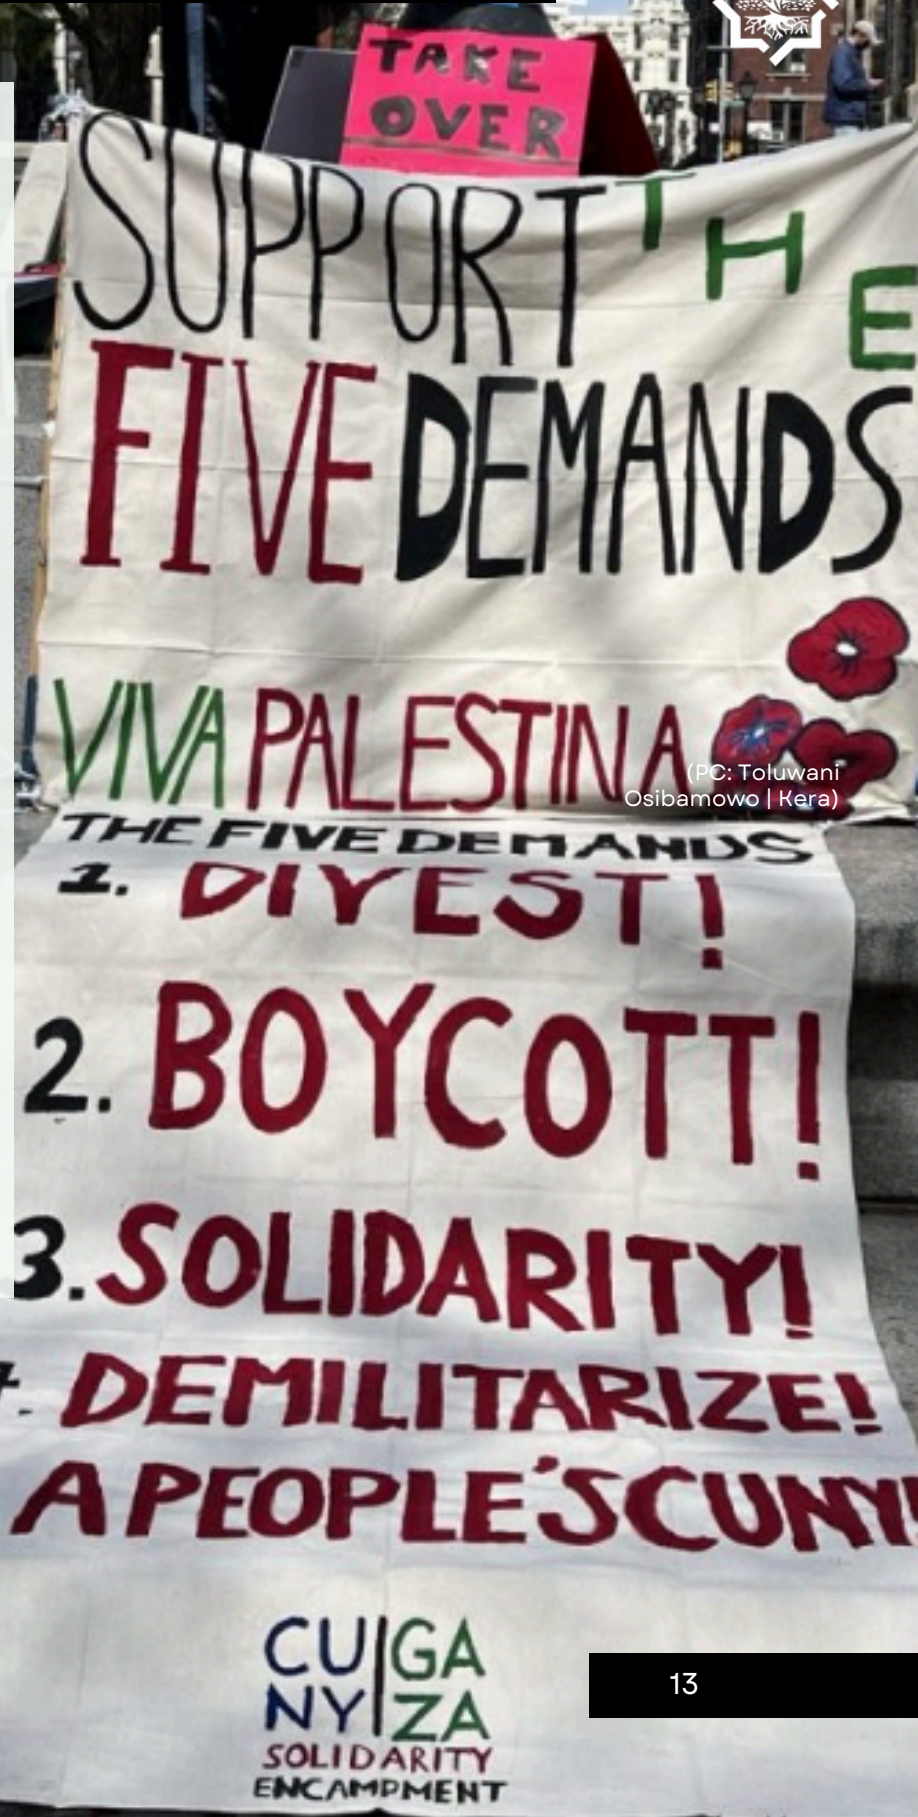 TAKE
OVER
SUPPORT THE
FIVE DEMANDS
VIVA PALESTINA
(PC: Toluwani
Osibamowo | Kera)
THE FIVE DEMANDS
1. DIVEST!
2. BOYCOTT!
3. SOLIDARITY!
DEMILITARIZE!
A PEOPLE'S CUNY!
CU|GA
NY|ZA
SOLIDARITY
ENCAMPMENT
13